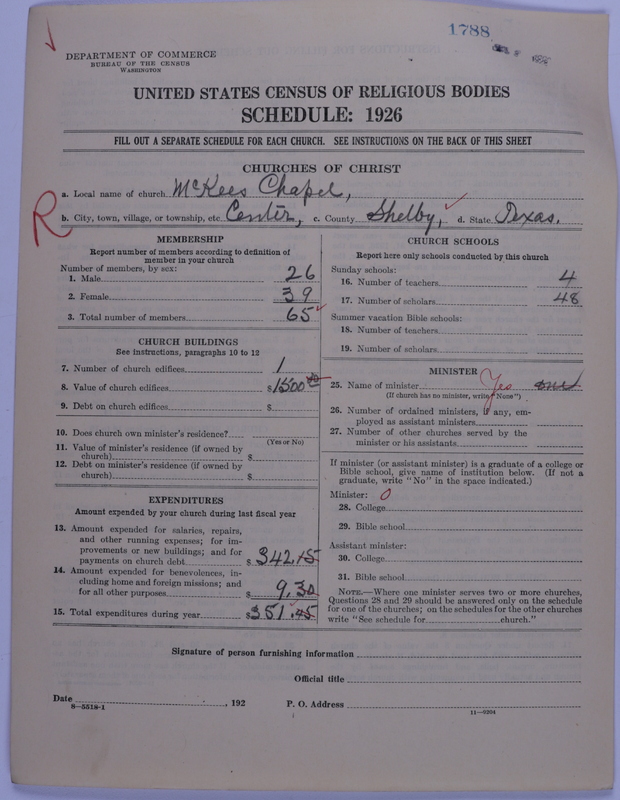 1788
DEPARTMENT OF COMMERCE
BUREAU OF THE CENSUS
WASHINGTON
UNITED STATES CENSUS OF RELIGIOUS BODIES
SCHEDULE: 1926
FILL OUT A SEPARATE SCHEDULE FOR EACH CHURCH. SEE INSTRUCTIONS ON THE BACK OF THIS SHEET
CHURCHES OF CHRIST
a. Local name of church McKees Chapel,
R
b. City, town, village, or township, etc. Center, c. County Shelby, d. State Texas.
MEMBERSHIP
Report number of members according to definition of
member in your church
Number of members, by sex:
1. Male 26
2. Female 39
3. Total number of members 65
CHURCH BUILDINGS
See instructions, paragraphs 10 to 12
7. Number of church edifices 1
8. Value of church edifices $1500
9. Debt on church edifices $
10. Does church own minister's residence?
(Yes or No)
11. Value of minister's residence (if owned by
church) $
12. Debt on minister's residence (if owned by
church) $
EXPENDITURES
Amount expended by your church during last fiscal year
13. Amount expended for salaries, repairs,
and other running expenses; for im-
provements or new buildings; and for
payments on church debt $ 342.15
14. Amount expended for benevolences, in-
cluding home and foreign missions; and
for all other purposes $ 9.30
15. Total expenditures during year $351.45
CHURCH SCHOOLS
Report here only schools conducted by this church
Sunday schools:
16. Number of teachers 4
17. Number of scholars 48
Summer vacation Bible schools:
18. Number of teachers
19. Number of scholars
MINISTER
25. Name of minister Yes
(If church has no minister, write "None")
26. Number of ordained ministers, if any, em-
ployed as assistant ministers
27. Number of other churches served by the
minister or his assistants
If minister (or assistant minister) is a graduate of a college or
Bible school, give name of institution below. (If not a
graduate, write "No" in the space indicated.)
Minister: 0
28. College
29. Bible school
Assistant minister:
30. College
31. Bible school
NOTE.—Where one minister serves two or more churches,
Questions 28 and 29 should be answered only on the schedule
for one of the churches; on the schedules for the other churches
write "See schedule for church."
Signature of person furnishing information
Official title
Date , 192 P. O. Address
8—5518-1 11—9204